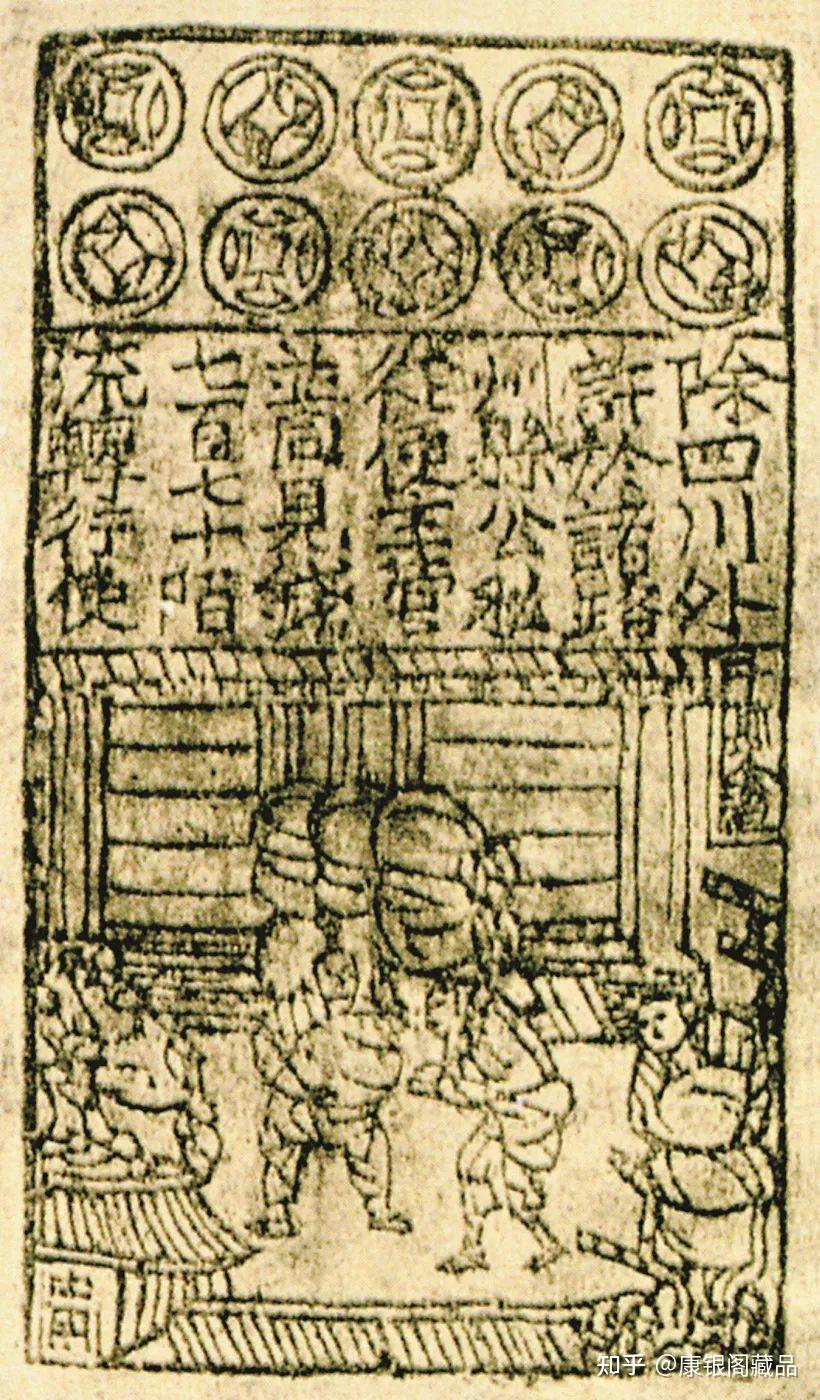 除四川外
許於諸路
州縣公私
從便主管
並同見錢
七百七十陌
流轉行使
千斯倉
知乎 @康银阁藏品